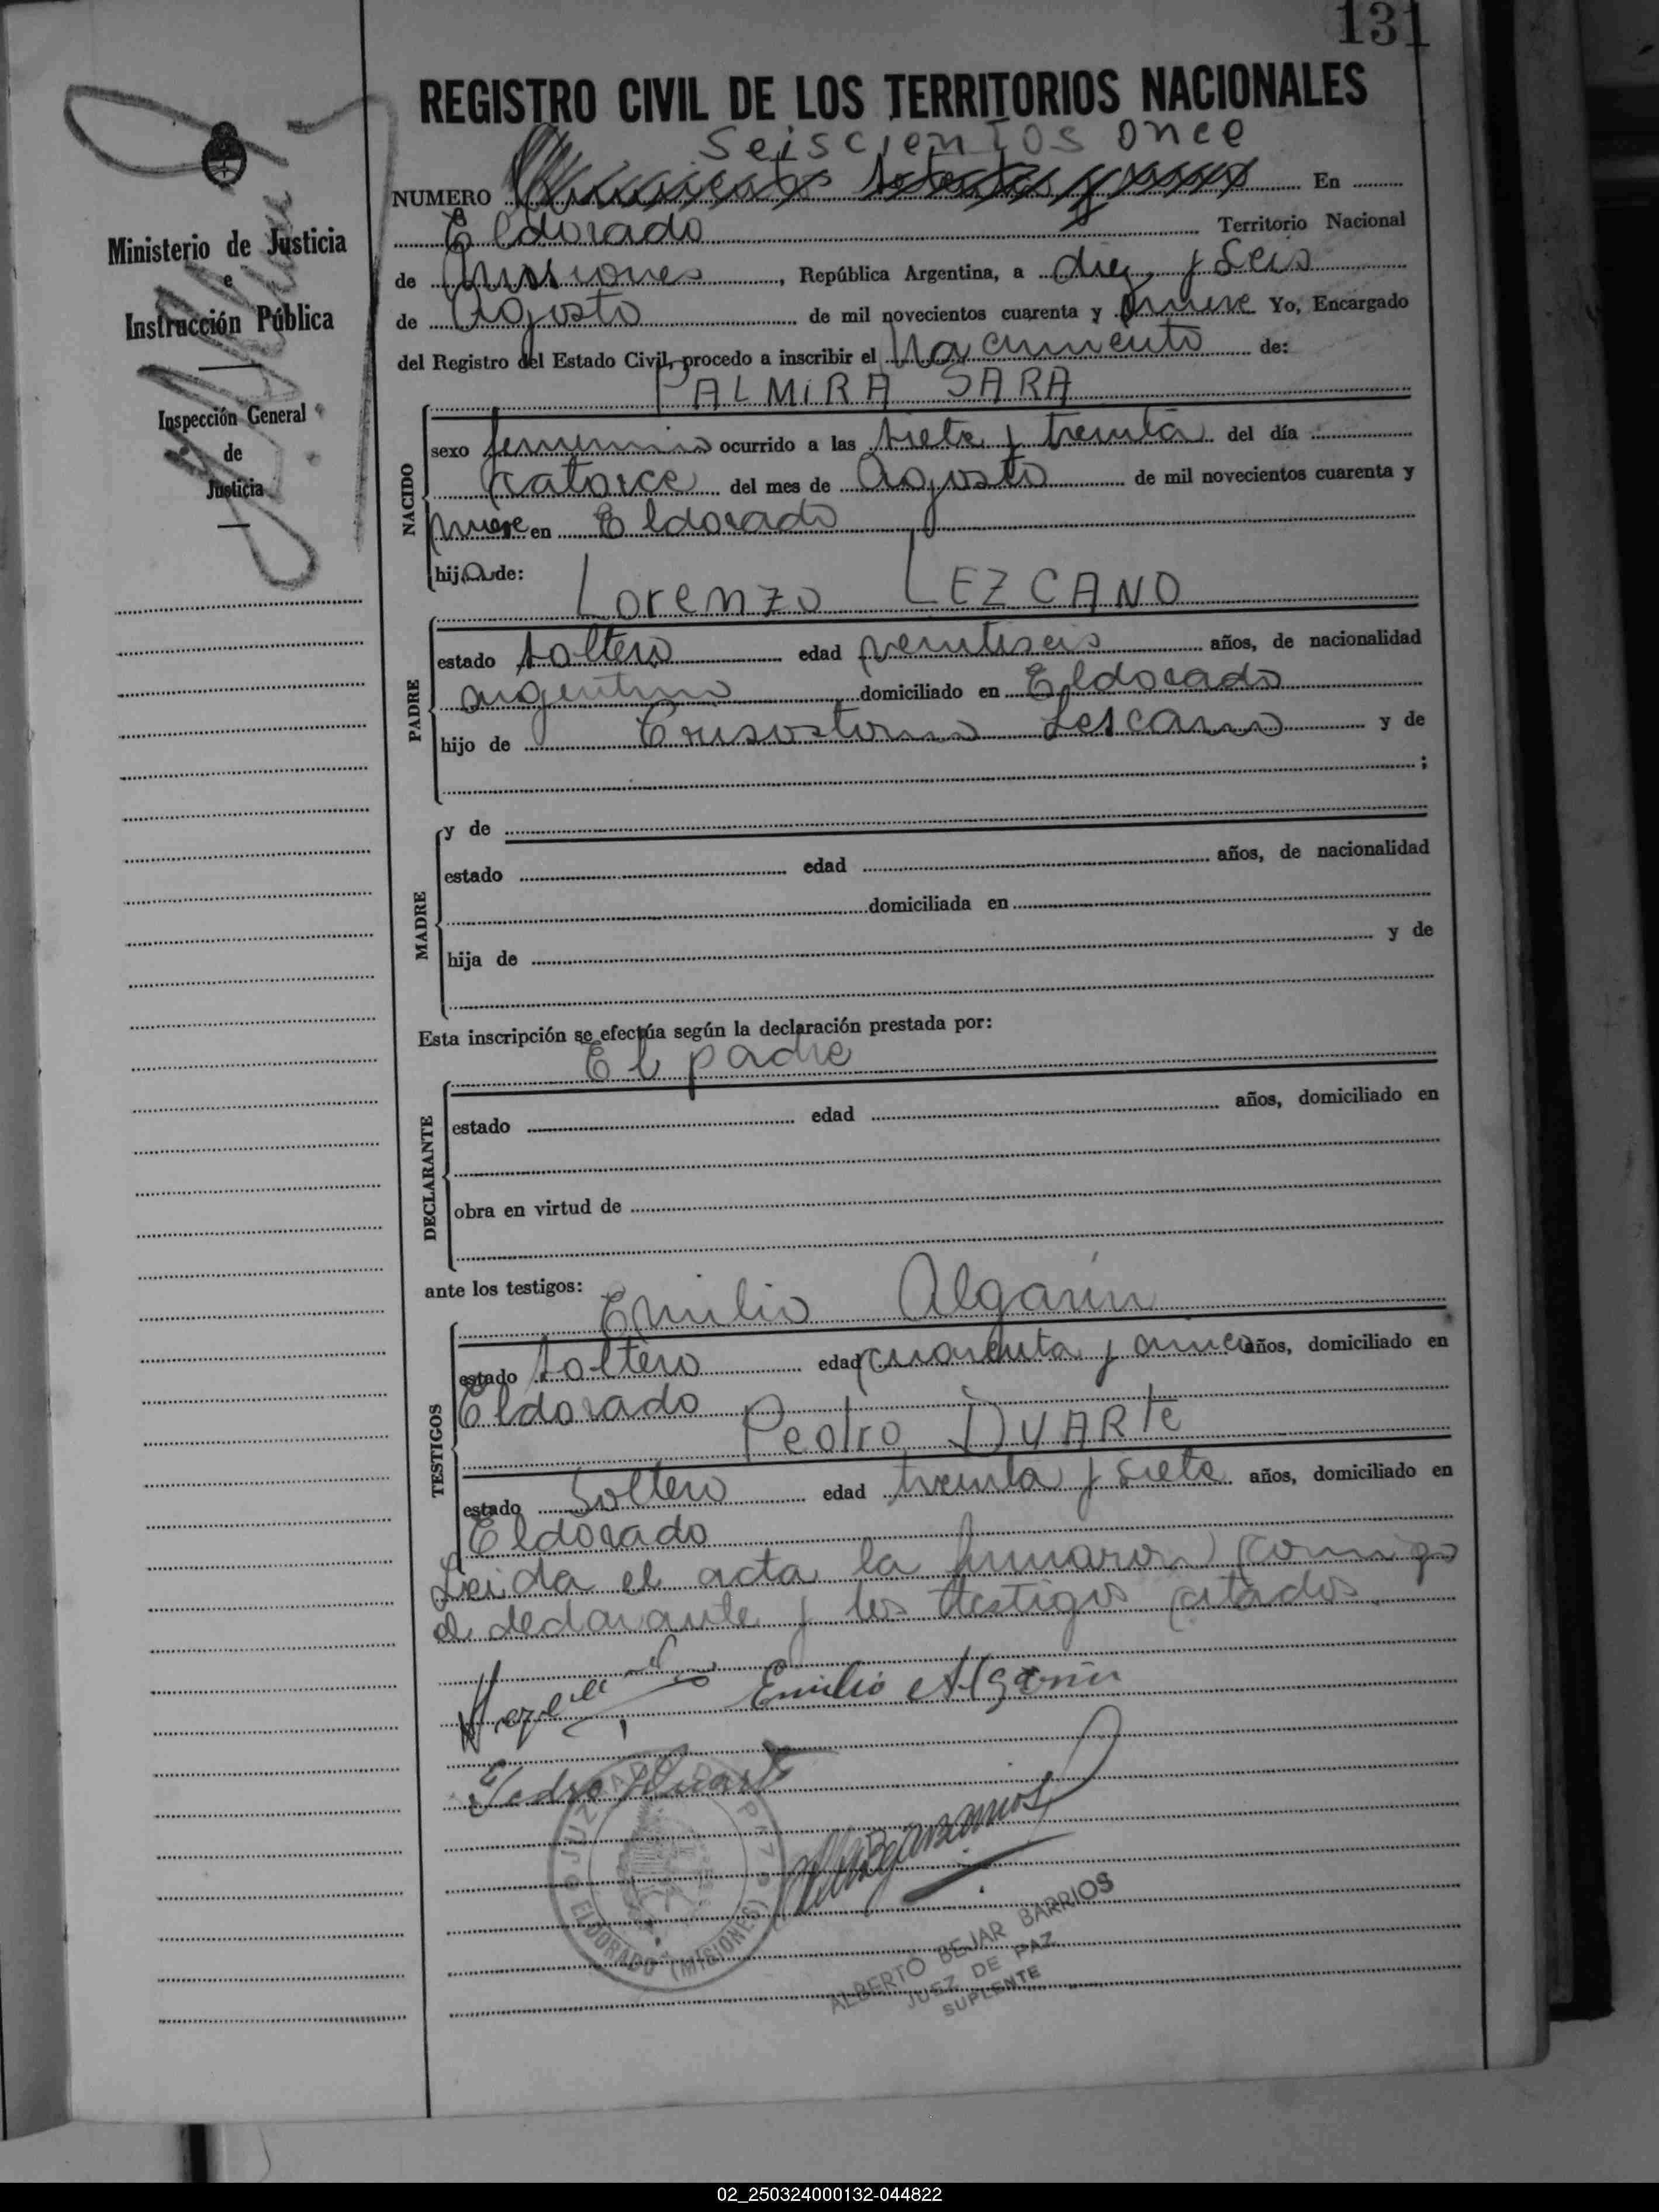 131
REGISTRO CIVIL DE LOS TERRITORIOS NACIONALES
Seiscientos once
NUMERO En
Eldorado Territorio Nacional
de Misiones, República Argentina, a diez y seis
de Agosto de mil novecientos cuarenta y nueve Yo, Encargado
del Registro del Estado Civil, procedo a inscribir el nacimiento de:
PALMIRA SARA
sexo femenino ocurrido a las siete y treinta del día
catorce del mes de Agosto de mil novecientos cuarenta y
nueve en Eldorado
hija de:
NACIDO
Lorenzo LEZCANO
estado soltero edad veintiseis años, de nacionalidad
argentino domiciliado en Eldorado
hijo de Crisostomo Lescano y de
;
PADRE
y de
estado edad años, de nacionalidad
domiciliada en
hija de y de
MADRE
Esta inscripción se efectúa según la declaración prestada por:
El padre
estado edad años, domiciliado en
obra en virtud de
DECLARANTE
ante los testigos:
Emilio Algarin
estado soltero edad cuarenta y años, domiciliado en
Eldorado
Pedro DUARTe
estado Soltero edad treinta y siete años, domiciliado en
Eldorado
TESTIGOS
Leida el acta la firmaron comigo
el declarante y los testigos citados.
Emilio Algarin
Pedro Duarte
JUZGADO DE PAZ
ELDORADO (MISIONES)
ALBERTO BEJAR BARRIOS
JUEZ DE PAZ
SUPLENTE
Ministerio de Justicia
e
Instrucción Pública
Inspección General
de
Justicia
02_250324000132-044822